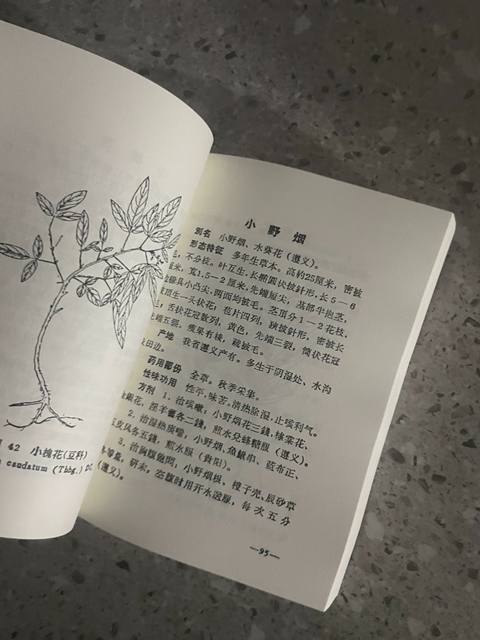 42 小槐花(豆科)
caudatum (Thbg.) DC.
小野烟
别名 小野烟、水葵花(遵义)。
形态特征 多年生草本。高约25厘米,密被
,不分枝。叶互生,长椭圆状披针形,长5—6
厘米,宽1.5—2厘米,先端短尖,基部半抱茎,
缘具小凸尖,两面均被毛。茎顶分1—2花枝,
顶生一头状花,苞片四列,线状披针形,密被长
,舌状花冠数列,黄色,先端三裂,筒状花冠
端五裂。瘦果有棱,疏被毛。
产地 我省遵义产有。多生于阴湿处、水沟
田边。
药用部份 全草。秋季采集。
性味功用 性平,味苦。清热除湿,止咳利气。
方剂 1.治咳嗽:小野烟花三錢,棣棠花、
花,淫羊藿各二錢,煎水兑蜂糖服(遵义)。
2.治湿热痰喘,小野烟,鱼鳅串、蓝布正、
皮风各五錢,煎水服(贵阳)。
3.治胸膈饱闷,小野烟根、橙子壳、辰砂草
等量,研末。空腹时用开水送服,每次五分
(遵义)。
—95—